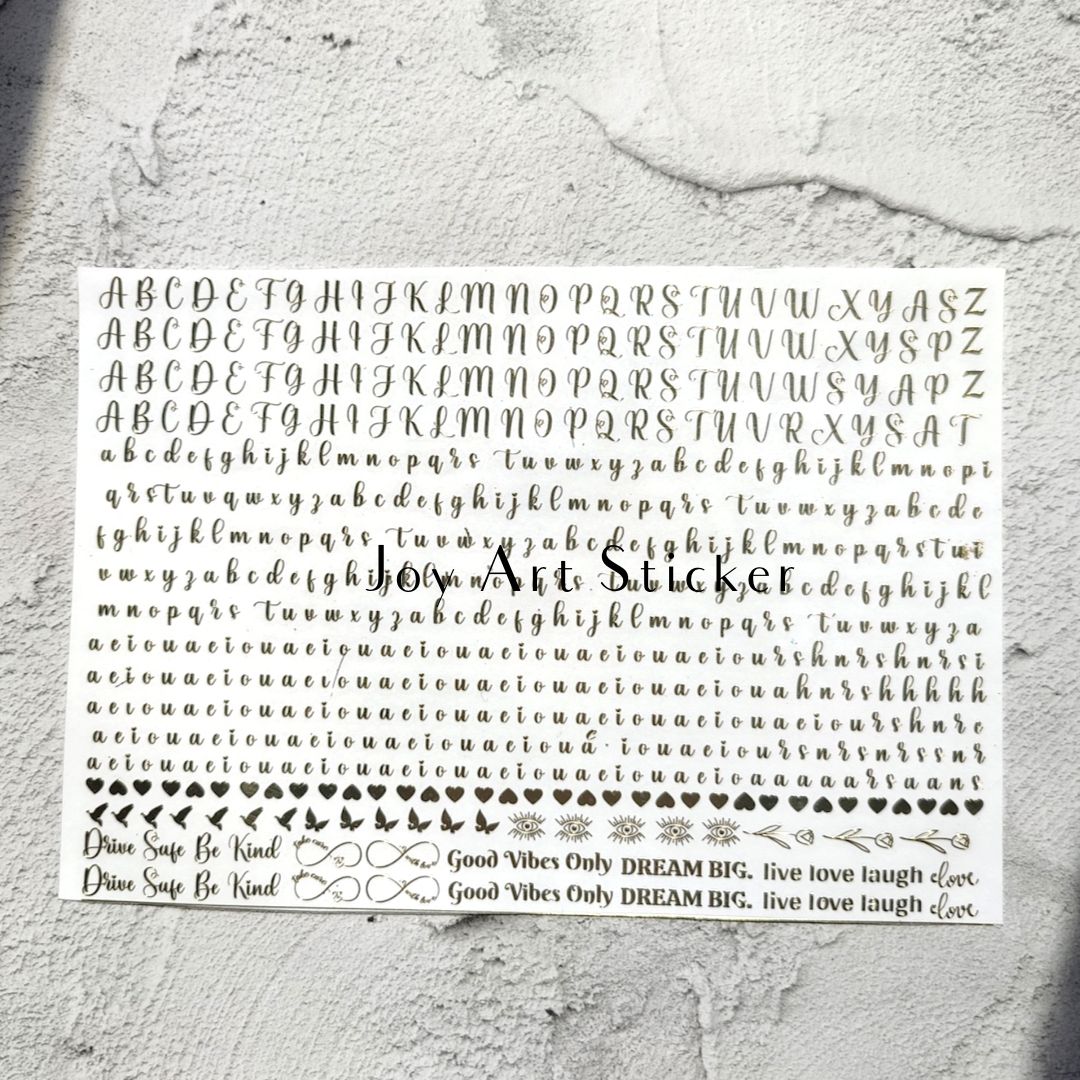 A B C D E F G H I J K L M N O P Q R S T U V W X Y A S Z
A B C D E F G H I J K L M N O P Q R S T U V W X Y S P Z
A B C D E F G H I J K L M N O P Q R S T U V W S Y A P Z
A B C D E F G H I J K L M N O P Q R S T U V R X Y S A T
a b c d e f g h i j k l m n o p q r s t u v w x y z a b c d e f g h i j k l m n o p i
q r s t u v q w x y z a b c d e f g h i j k l m n o p q r s t u v w x y z a b c d e
f g h i j k l m n o p q r s t u v w x y z a b c d e f g h i j k l m n o p q r s t u i
Joy Art Sticker
v w x y z a b c d e f g h i j k l m n o p q r s t u v w x y z a b c d e f g h i j k l
m n o p q r s t u v w x y z a b c d e f g h i j k l m n o p q r s t u v w x y z a
a e i o u a e i o u a e i o u a e i o u a e i o u a e i o u a e i o u r s h n r s h n r s i
a e i o u a e i o u a e i o u a e i o u a e i o u a e i o u a e i o u a h n r s h h h h h
a e i o u a e i o u a e i o u a e i o u a e i o u a e i o u a e i o u a e i o u r s h n r e
a e i o u a e i o u a e i o u a e i o u a e i o u a i o u a e i o u r s n r s n r s s n r
a e i o u a e i o u a e i o u a e i o u a e i o u a e i o u a e i o a a a a a r s a a n s
Drive Safe Be Kind take care Good Vibes Only DREAM BIG. live love laugh love
Drive Safe Be Kind take care Good Vibes Only DREAM BIG. live love laugh love